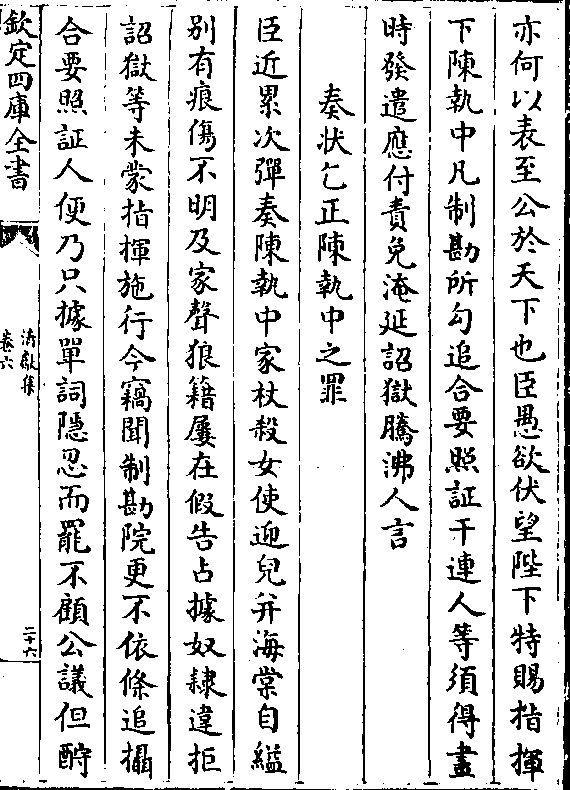 亦何以表至公於天下也臣愚欲伏望陛下特賜指揮
下陳執中凡制勘所勾追合要照証干連人等須得盡
時發遣應付責免淹延詔獄騰沸人言
奏狀乞正陳執中之罪
臣近累次彈奏陳執中家杖殺女使迎兒并海棠自縊
別有痕傷不明及家聲狼籍屢在假告占據奴隸違拒
詔獄等未蒙指揮施行今竊聞制勘院更不依條追攝
合要照証人便乃只據單詞隱忍而罷不顧公議但酧
欽定四庫全書
清獻集
卷六
二十六